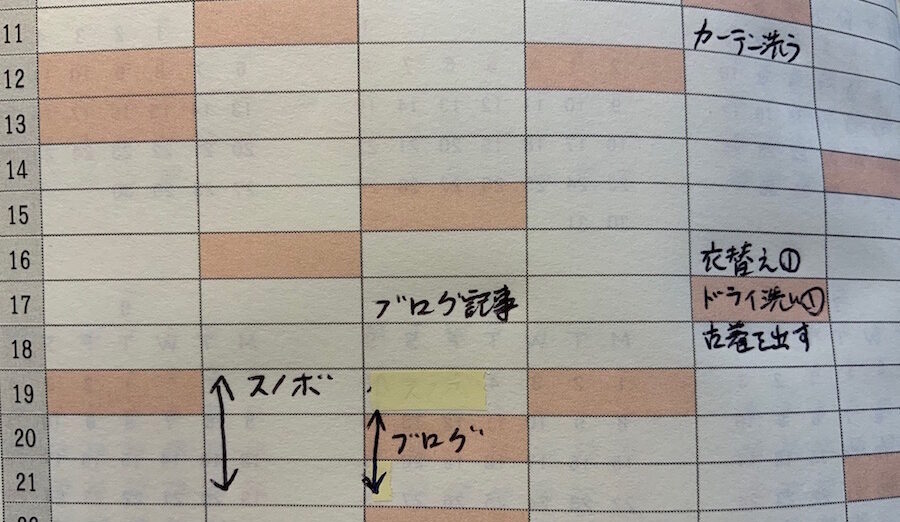 11
カーテン洗う
12
13
14
15
16
衣替え①
17
ブログ記事
ドライ洗い①
18
古着を出す
19
スノボ
20
ブログ
21